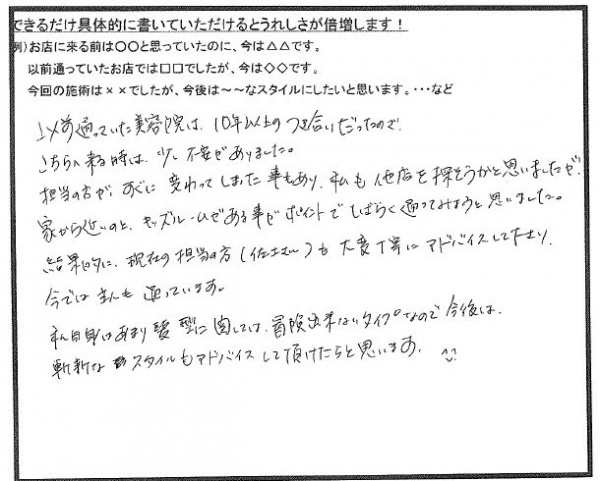 できるだけ具体的に書いていただけるとうれしさが倍増します！
例)お店に来る前は〇〇と思っていたのに、今は△△です。
以前通っていたお店では□□でしたが、今は◇◇です。
今回の施術は××でしたが、今後は～～なスタイルにしたいと思います。・・・など
以前通っていた美容院は、10年以上のつき合いだったので、
こちらへ来る時は、少し不安がありました。
担当の方が、すぐに変わってしまった事もあり、私も他店を探そうかと思いましたが、
家から近いのと、キッズルームがある事がポイントでしばらく通ってみようと思いました。
結果的に、現在の担当の方(佐土さん)も大変丁寧にアドバイスして下さり、
今では主人も通っています。
私自身はあまり髪型に関しては、冒険出来ないタイプなので今後は、
斬新なスタイルもアドバイスして頂けたらと思います。^^